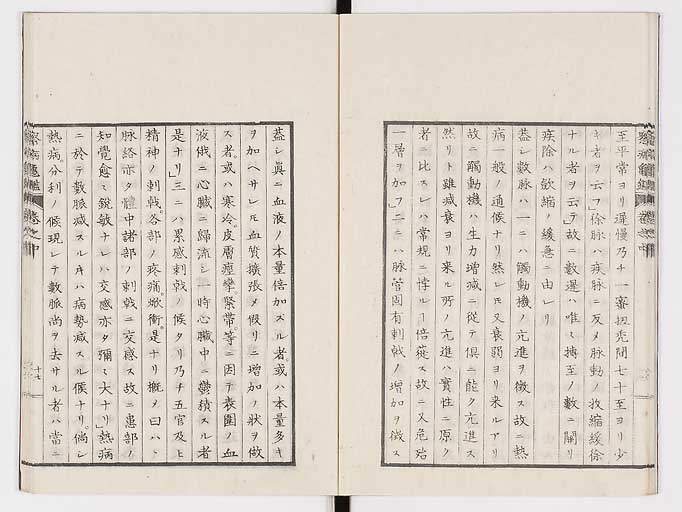 至平常ヨリ遅慢乃チ一蜜扭禿間七十至ヨリ少
キ者ヲ云フ」徐脉ハ疾脉ニ反メ脉動ノ收縮緩徐
ナル者ヲ云テ故ニ數遲ハ唯ミ摶至ノ數ニ關リ
疾徐ハ歛縮ノ緩急ニ由レリ
蓋シ數脉ハ一ニハ觸動機ノ亢進ヲ徴ス故ニ熱
病一般ノ通候ナリ然レモ又衰弱ヨリ来ルアリ
故ニ觸動機ハ生力増減ニ從テ倶ニ能ク亢進ス
然リト雖減衰ヨリ来ル所ノ亢進ハ實性ニ原ク
者ニ比スレハ常規ニ博ル一倍蓰ス故ニ又危殆
一層ヲ加フ」二ニハ脉管固有刺戟ノ増加ヲ徴ス
察病亀鑑 巻之中
蓋シ眞ニ血液ノ本量倍加スル者。或ハ本量多キ
ヲ加ヘサレモ血質擴張メ假リニ増加ノ狀ヲ做
ス者。或ハ寒冷。皮膚痙攣緊帶等ニ因テ表圍ノ血
液俄ニ心臓ニ歸流シ一時心臓中ニ鬱積スル者
是ナリ」三ニハ累感刺戟ノ候タリ乃チ五官及ヒ
精神ノ刺戟各部ノ疼痛。焮衝。是ナリ概メ曰ハヽ
脉絡亦タ體中諸部ノ刺戟ニ交感ス故ニ患部ノ
知覺愈ミ銳敏ナレハ交感亦タ彌ミ大ナリ」熱病
ニ於テ數脈減スルキハ病勢減スル候ナリ。倘シ
熱病分利ノ候現レテ數脈尚ヲ去サル者ハ當ニ
察病亀鑑 巻之中
十七